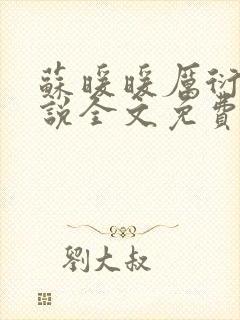 蘇暖暖厲衍
說全文免費
劉大叔